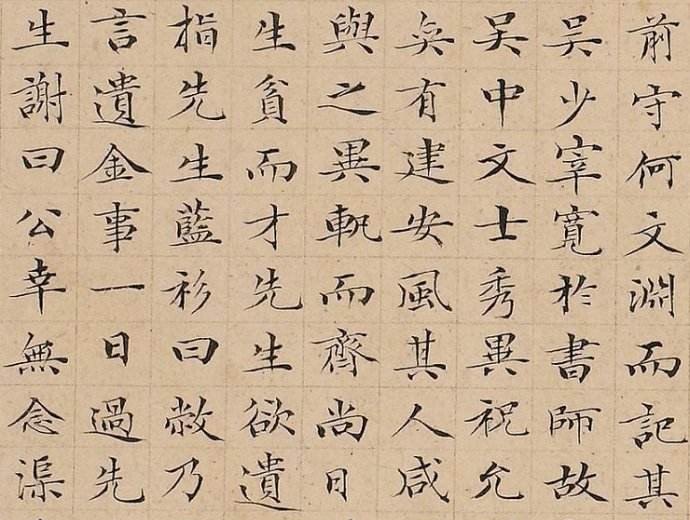 前守何文淵而記其
吴少宰寬於書師故
吴中文士秀異祝允
矣有建安風其人咸
與之異軌而齊尚日
生貧而才先生欲遺
指先生藍衫曰敝乃
言遺金事一日過先
生謝曰公幸無念渠